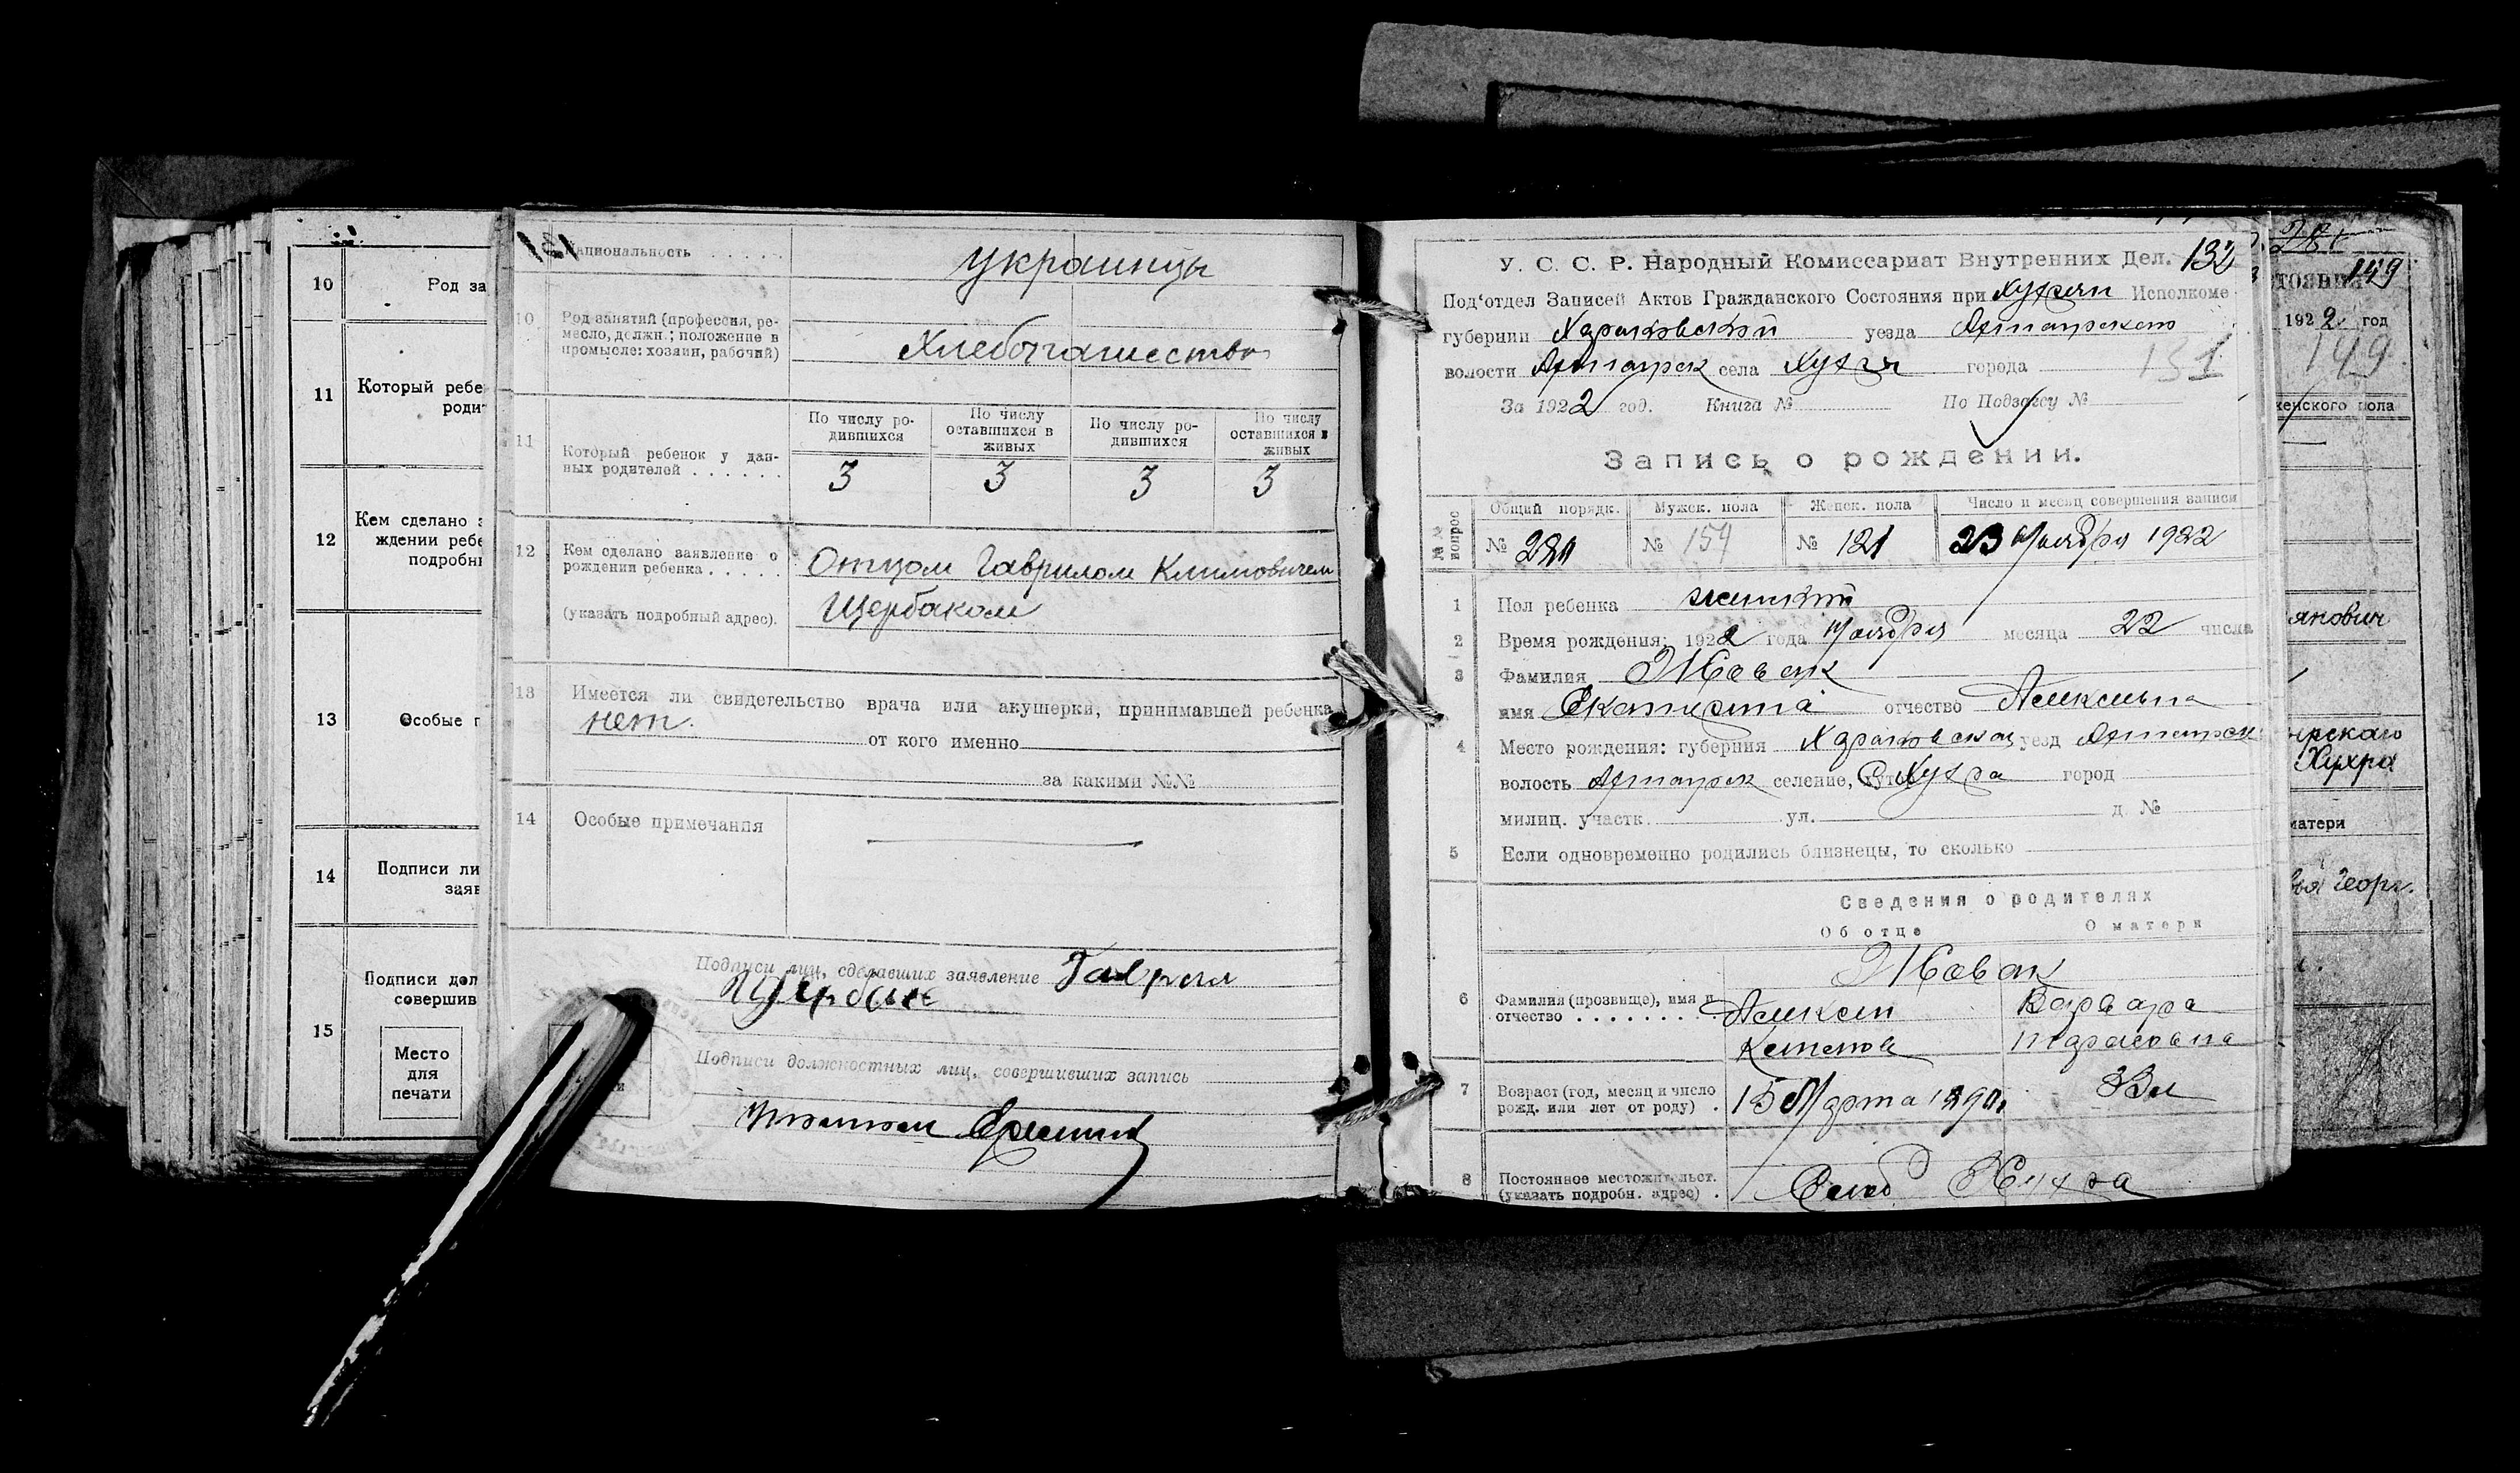 10 Род за
11 Который ребе
роди
12 Кем сделано з
ждении ребе
подробн
13 Особые п
14 Подписи ли
заяв
15 Подписи дол
совершив
Место
для
печати
131
Национальность . . . . . украинцы
10 Род занятий (профессия, ре-
месло, должн.; положение в
промысле: хозяин, рабочий)
Хлебопашество
11 Который ребенок у дан-
ных родителей . . . . . .
По числу ро-
дившихся
По числу
оставшихся в
живых
По числу ро-
дившихся
По числу
оставшихся в
живых
3 3 3 3
12 Кем сделано заявление о
рождении ребенка . . . . .
(указать подробный адрес).
Отцом Гаврилом Климовичем
Щербаком
13 Имеется ли свидетельство врача или акушерки, принимавшей ребенка
нет.
от кого именно
за какими №№
14 Особые примечания
Подписи лиц, сделавших заявление Гаврил
Щербак
Подписи должностных лиц, совершивших запись
У. С. С. Р. Народный Комиссариат Внутренних Дел. 132
Под'отдел Записей Актов Гражданского Состояния при Исполкоме
губернии Харьковской уезда Ахтырского
волости Ахтырск села Хухря города 131
За 1922 год. Книга № По Подзагсу №
Запись о рождении.
№№ вопрос
Общий порядк. Мужск. пола Женск. пола Число и месяц совершения записи
№ 280 № 159 № 121 23 Ноября 1922
1 Пол ребенка женский
2 Время рождения: 1922 года Ноября месяца 22 числа
3 Фамилия
имя Екатерина отчество Алексеевна
4 Место рождения: губерния Харьковская уезд Ахтырск
волость Ахтырск селение, хут. Хухра город
милиц. участк. ул. д. №
5 Если одновременно родились близнецы, то сколько
Сведения о родителях
Об отце О матери
6 Фамилия (прозвище), имя и
отчество . . . . . . . . .
Алексей Варвара
Тарасовна
7 Возраст (год, месяц и число
рожд. или лет от роду) .
15 Марта 1890. 33 л
8 Постоянное местожительст.
(указать подробн. адрес) .
Село Хухра
стояния 149
1922 год
149
женского пола
янович
ырского
Хухра
матери
Георг.